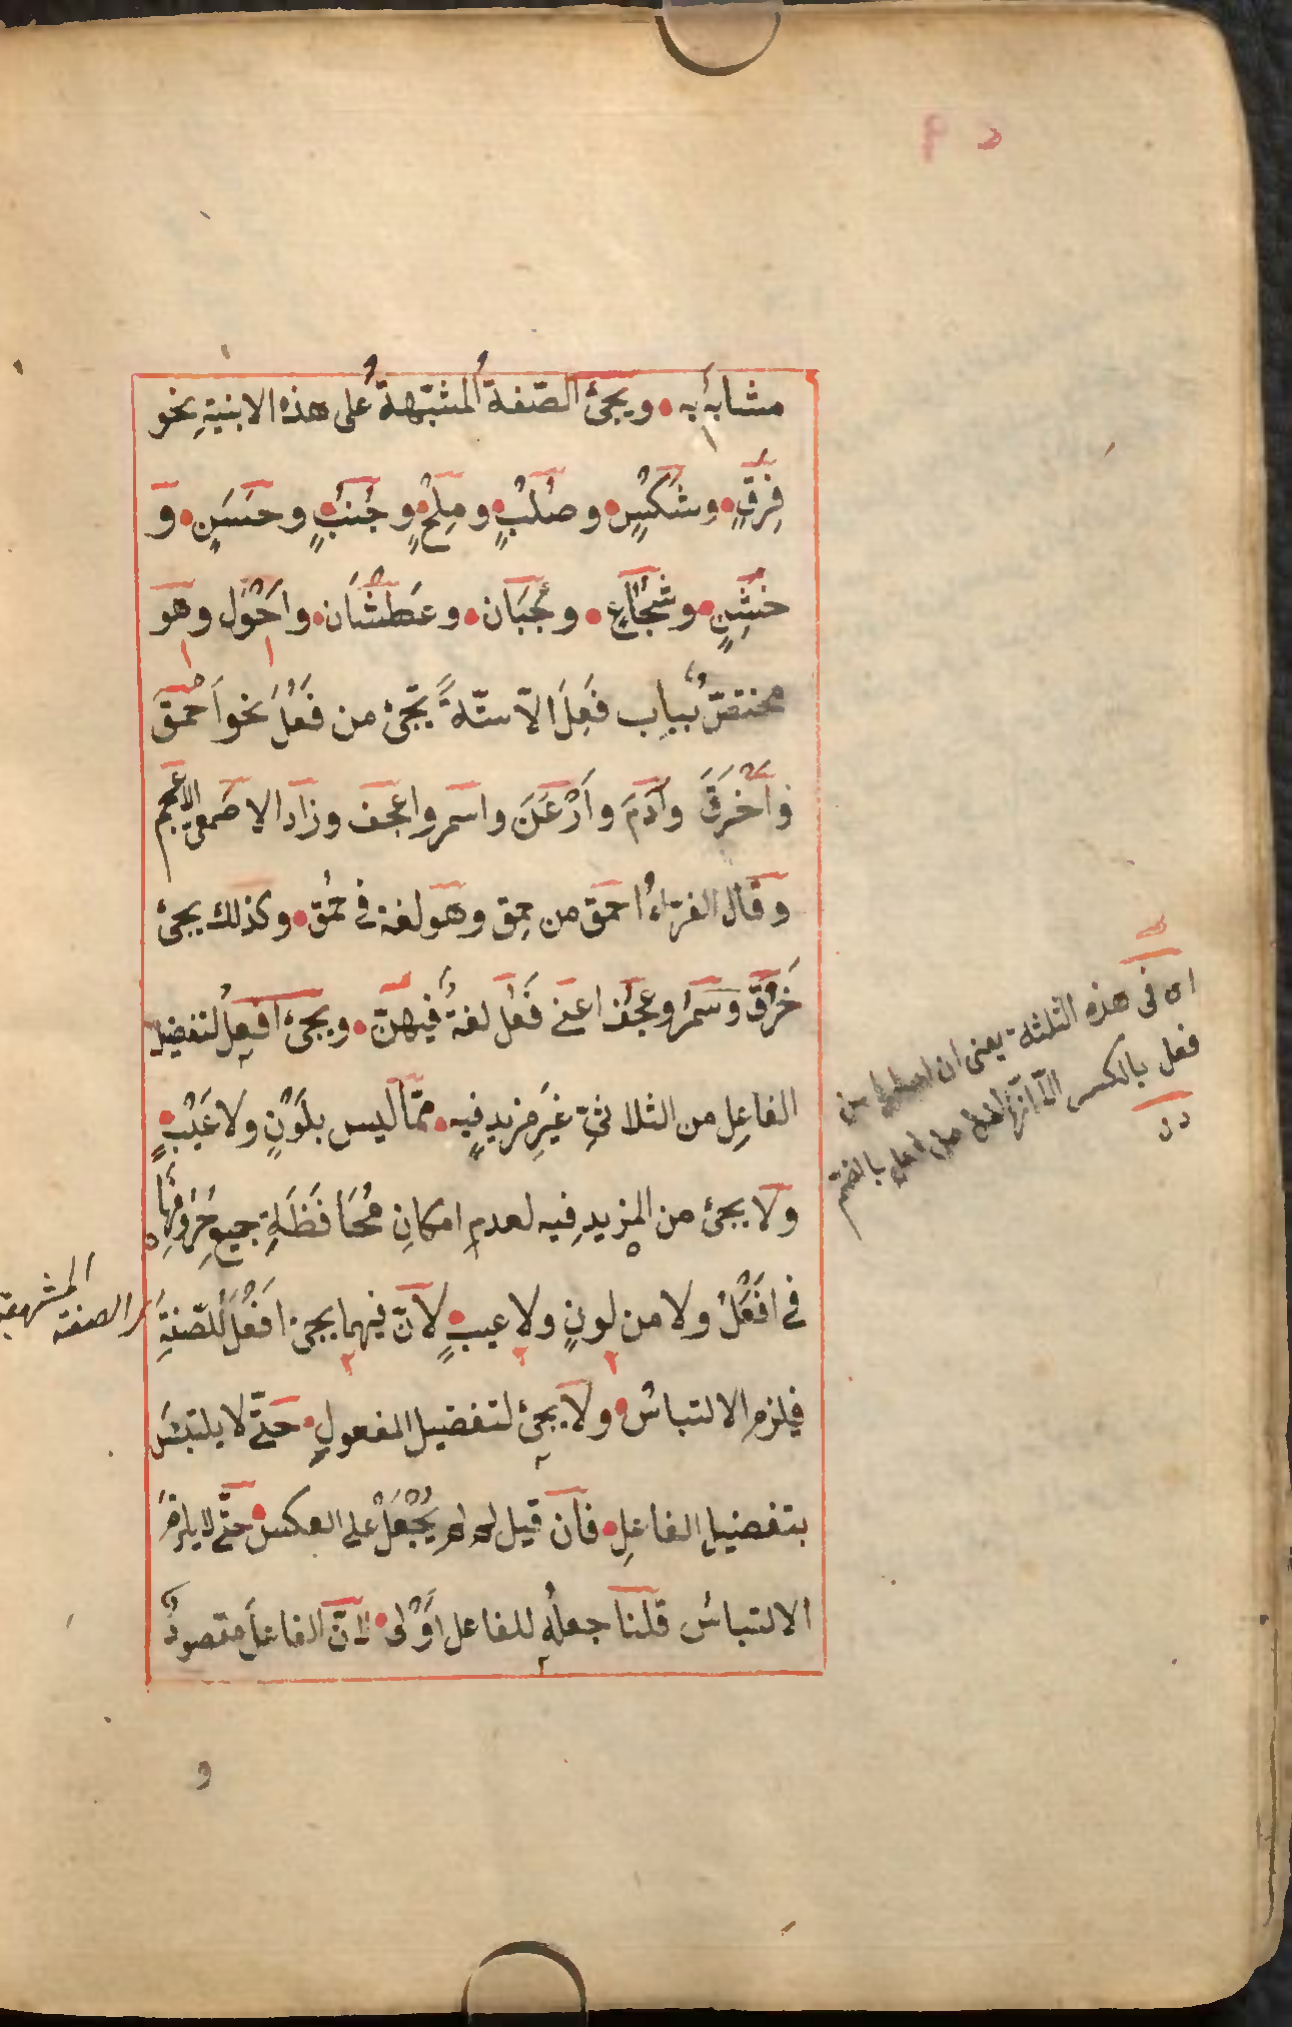 مشابهٌ به ويجئ الصّفةُ المشبّهةُ على هذه الابنيةِ نحو
فَرِقٍ وشَكْسٍ وصُلْبٍ ومِلْحٍ وجُنُبٍ وحَسَنٍ وَ
خَشِنٍ وشُجَاعٍ وجَبَان وعَطْشَان واَحْوَل وهو
مختصّ بباب فَعِلَ الّا ستّةً يجّئ من فَعُلَ نحو اَحمق
وَاَخْرَق وآدَمَ واَرْعَنَ واسمر واعجف وزاد الاصمعىّ الاعجم
وقال الفرّاءُ احمق من حمِق وهو لغة فى حمُق وكذلك يجئ
خَرُق وسَمُر وعَجُف اعنى فَعُل لغةٌ فيهنّ ويجئ افعلُ لتفضيل
الفاعِل من الثلاثىّ غيَرِ مزيدٍ فيه ممّا ليس بلَوْنٍ ولا عَيْبٍ
ولا يجئ من المزيدِ فيه لعدمِ امكانِ مُحَافَظَةِ جميع حُرُوفِهَا
فى افَعْلُ ولا من لونٍ ولا عيبٍ لانّ فيهما يجئ افَعْلُ للصّفةِ
فيلزم الالتباسُ ولا يجئ لتفضيل المفعولِ حتّى لا يلتبسَ
بتفضيلِ الفاعلِ فان قيل لم لم يُجْعَلْ على العكس حتّى لا يلزمَ
الالتباسُ قلنا جعلُه للفاعل اَوْلى لانّ الفاعلَ مقصودٌ
اى فى هذه الثلثة يعنى ان من
فعل بالكسر الّا انّها بالضّمّ
الصفة المشبهة
و